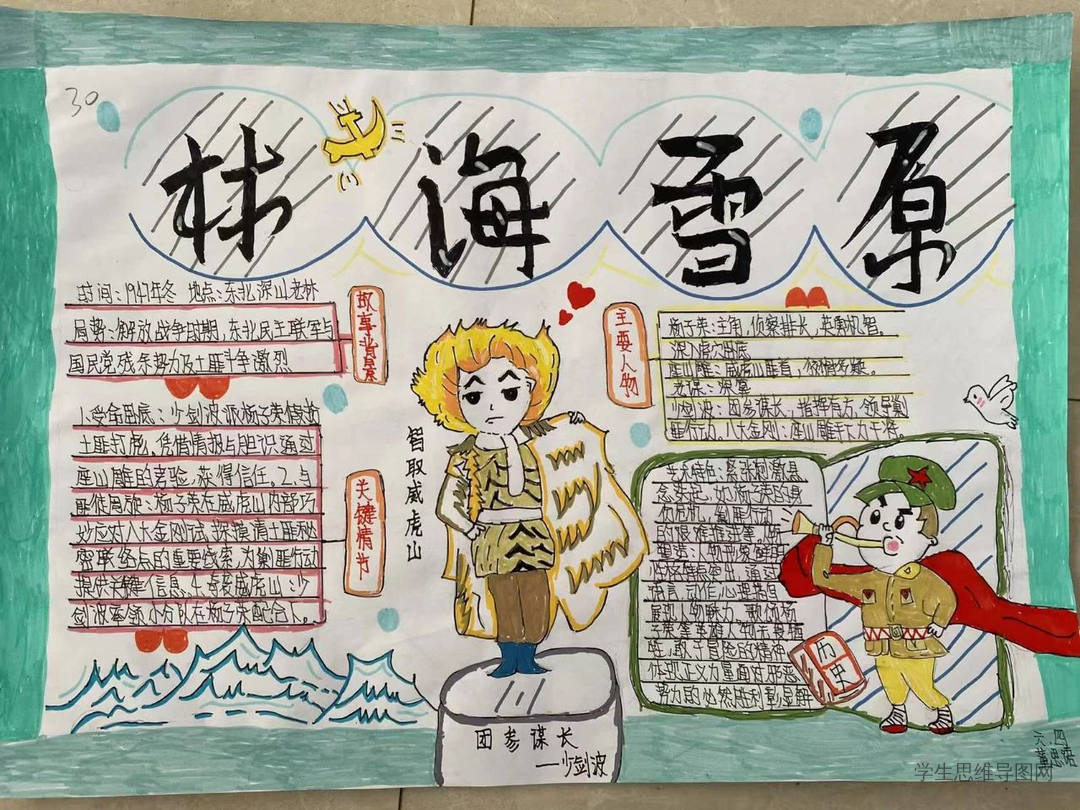 30
林海雪原
时间:1947年冬 地点:东北深山老林
局势:解放战争时期,东北民主联军与
国民党残余势力及土匪斗争激烈
故事背景
1.受命卧底:少剑波派杨子荣假扮
土匪打虎。凭借情报与胆识通过
座山雕的考验,获得信任。2.与
匪徒周旋:杨子荣在威虎山内部巧
妙应对八大金刚试探摸清土匪秘
密联络点的重要线索,为剿匪行动
提供关键信息。3.奇袭威虎山:少
剑波率领小分队在杨子荣配合下。
关键情节
智取威虎山
团参谋长
——少剑波
主要人物
杨子荣:主角,侦察排长,英勇机智。
深入虎穴卧底
座山雕:威虎山匪首,狡猾多疑。
老保:深墨
少剑波:团参谋长,指挥有方,领导剿
匪行动。八大金刚:座山雕手下力干将
艺术特色:紧张刺激悬
念迭起,如杨子荣的身
份危机,剿匪行动
的艰难推进等。场
塑造:人物形象鲜明
性格特点突出,通过
语言,动作,心理描写
展现人物魅力,歌颂杨
子荣等英雄人物主要牺
牲,敢于冒险的精神
体现正义力量面对邪恶
势力的必然胜利彰显解
历史
六.四
董思语
学生思维导图网